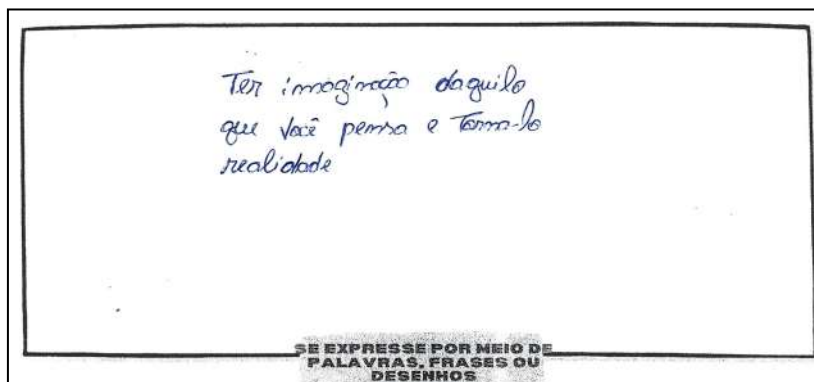 Ter imaginação daquilo
que você pensa e torna-lo
realidade
SE EXPRESSE POR MEIO DE
PALAVRAS, FRASES OU
DESENHOS